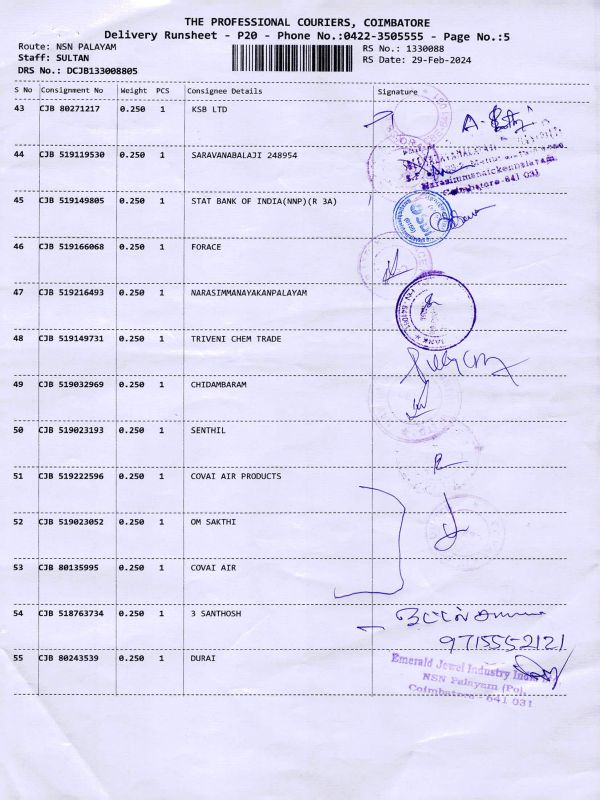 THE PROFESSIONAL COURIERS, COIMBATORE
Delivery Runsheet - P20 - Phone No.:0422-3505555 - Page No.:5
Route: NSN PALAYAM
RS No.: 1330088
Staff: SULTAN
RS Date: 29-Feb-2024
DRS No.: DCJB133008805
S No Consignment No Weight PCS Consignee Details Signature
43 CJB 80271217 0.250 1 KSB LTD
44 CJB 519119530 0.250 1 SARAVANABALAJI 248954
Narasimmanaickenpalayam,
Coimbatore-641 031
45 CJB 519149805 0.250 1 STAT BANK OF INDIA(NNP)(R 3A)
46 CJB 519166068 0.250 1 FORACE
47 CJB 519216493 0.250 1 NARASIMMANAYAKANPALAYAM
48 CJB 519149731 0.250 1 TRIVENI CHEM TRADE
49 CJB 519032969 0.250 1 CHIDAMBARAM
50 CJB 519023193 0.250 1 SENTHIL
51 CJB 519222596 0.250 1 COVAI AIR PRODUCTS
52 CJB 519023052 0.250 1 OM SAKTHI
53 CJB 80135995 0.250 1 COVAI AIR
54 CJB 518763734 0.250 1 3 SANTHOSH
9715552121
55 CJB 80243539 0.250 1 DURAI
Emerald Jewel Industry
NSN Palayam (Po),
Coimbatore - 641 031